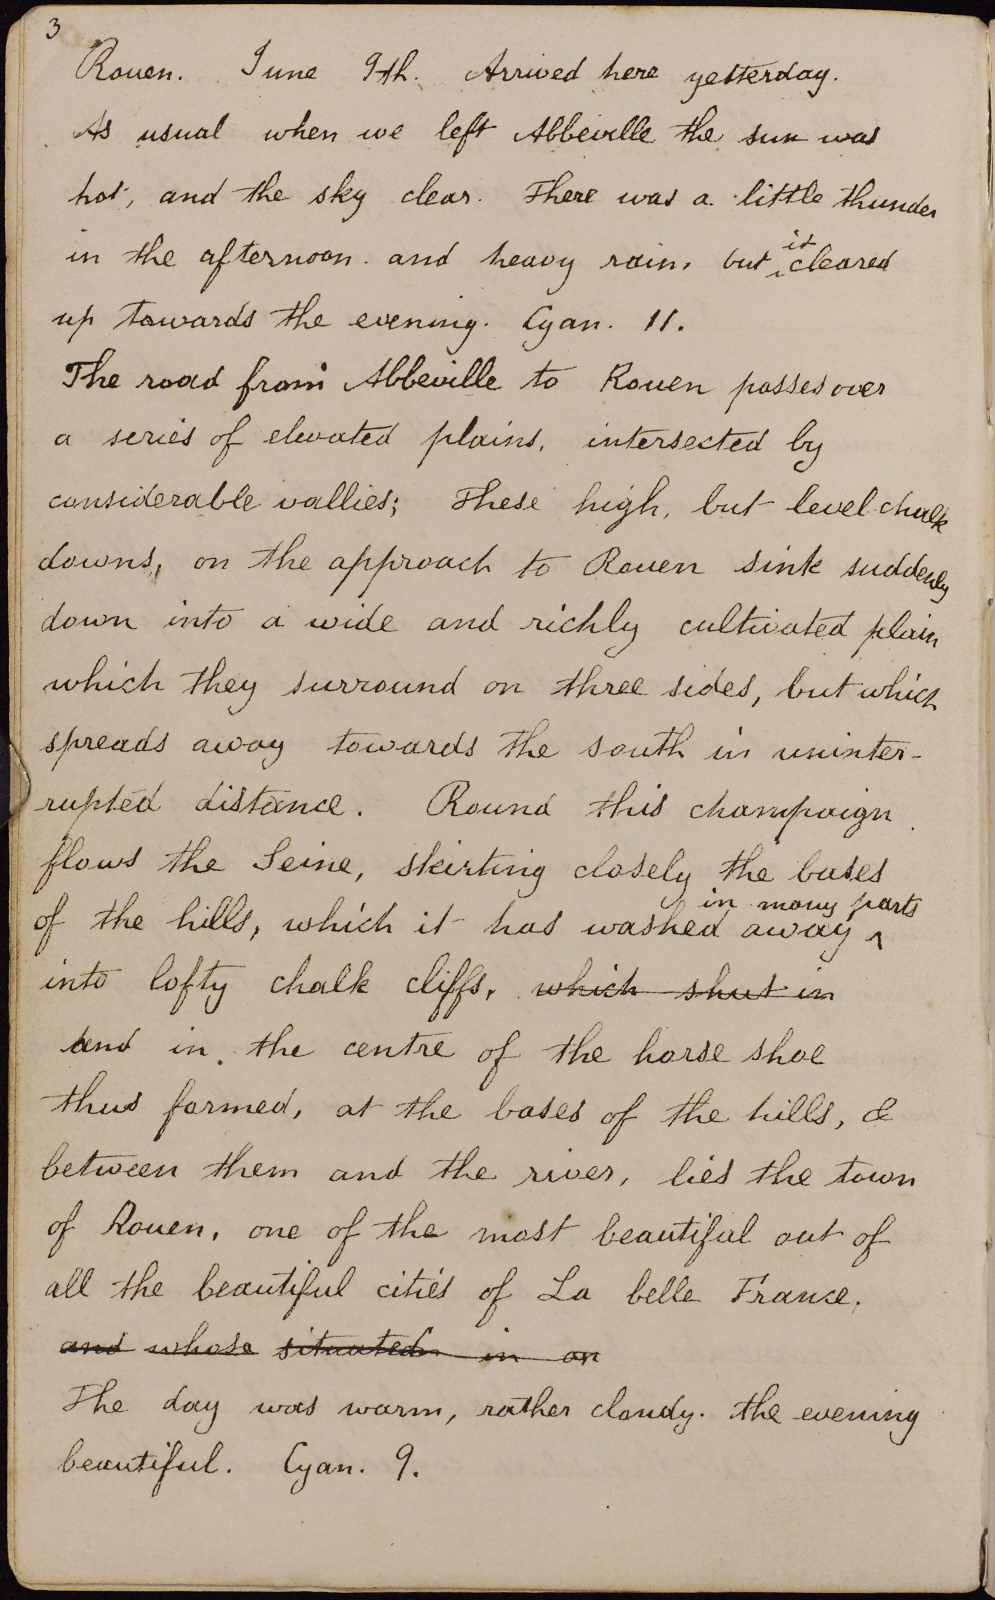 3
Rouen. June 9th. Arrived here yesterday.
As usual when we left Abbeville the sun was
hot, and the sky clear. There was a little thunder
in the afternoon. and heavy rain, but it cleared
up towards the evening. Cyan. 11.
The road from Abbeville to Rouen passes over
a series of elevated plains, intersected by
considerable vallies; These high, but level chalk
downs, on the approach to Rouen sink suddenly
down into a wide and richly cultivated plain
which they surround on three sides, but which
spreads away towards the south in uninter-
rupted distance. Round this champaign
flows the Seine, skirting closely the bases
of the hills, which it has washed away in many parts
into lofty chalk cliffs, which shut in
and in the centre of the horse shoe
thus formed, at the bases of the hills, &
between them and the river, lies the town
of Rouen, one of the most beautiful out of
all the beautiful cities of La belle France.
and whose situated in an
The day was warm, rather cloudy. the evening
beautiful. Cyan. 9.